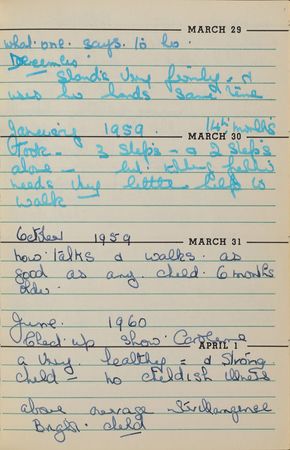 MARCH 29
what one says to her
December
Stands very firmly &
uses her hands same time
January 1959. 14 months
MARCH 30
Took 3 steps & 2 steps
alone — but
needs very little help to
walk
October 1959
MARCH 31
now talks & walks as
good as any child 6 months
older
June 1960
up show Caroline
APRIL 1
a very healthy = & strong
child = no childish illness
above average
Bright child